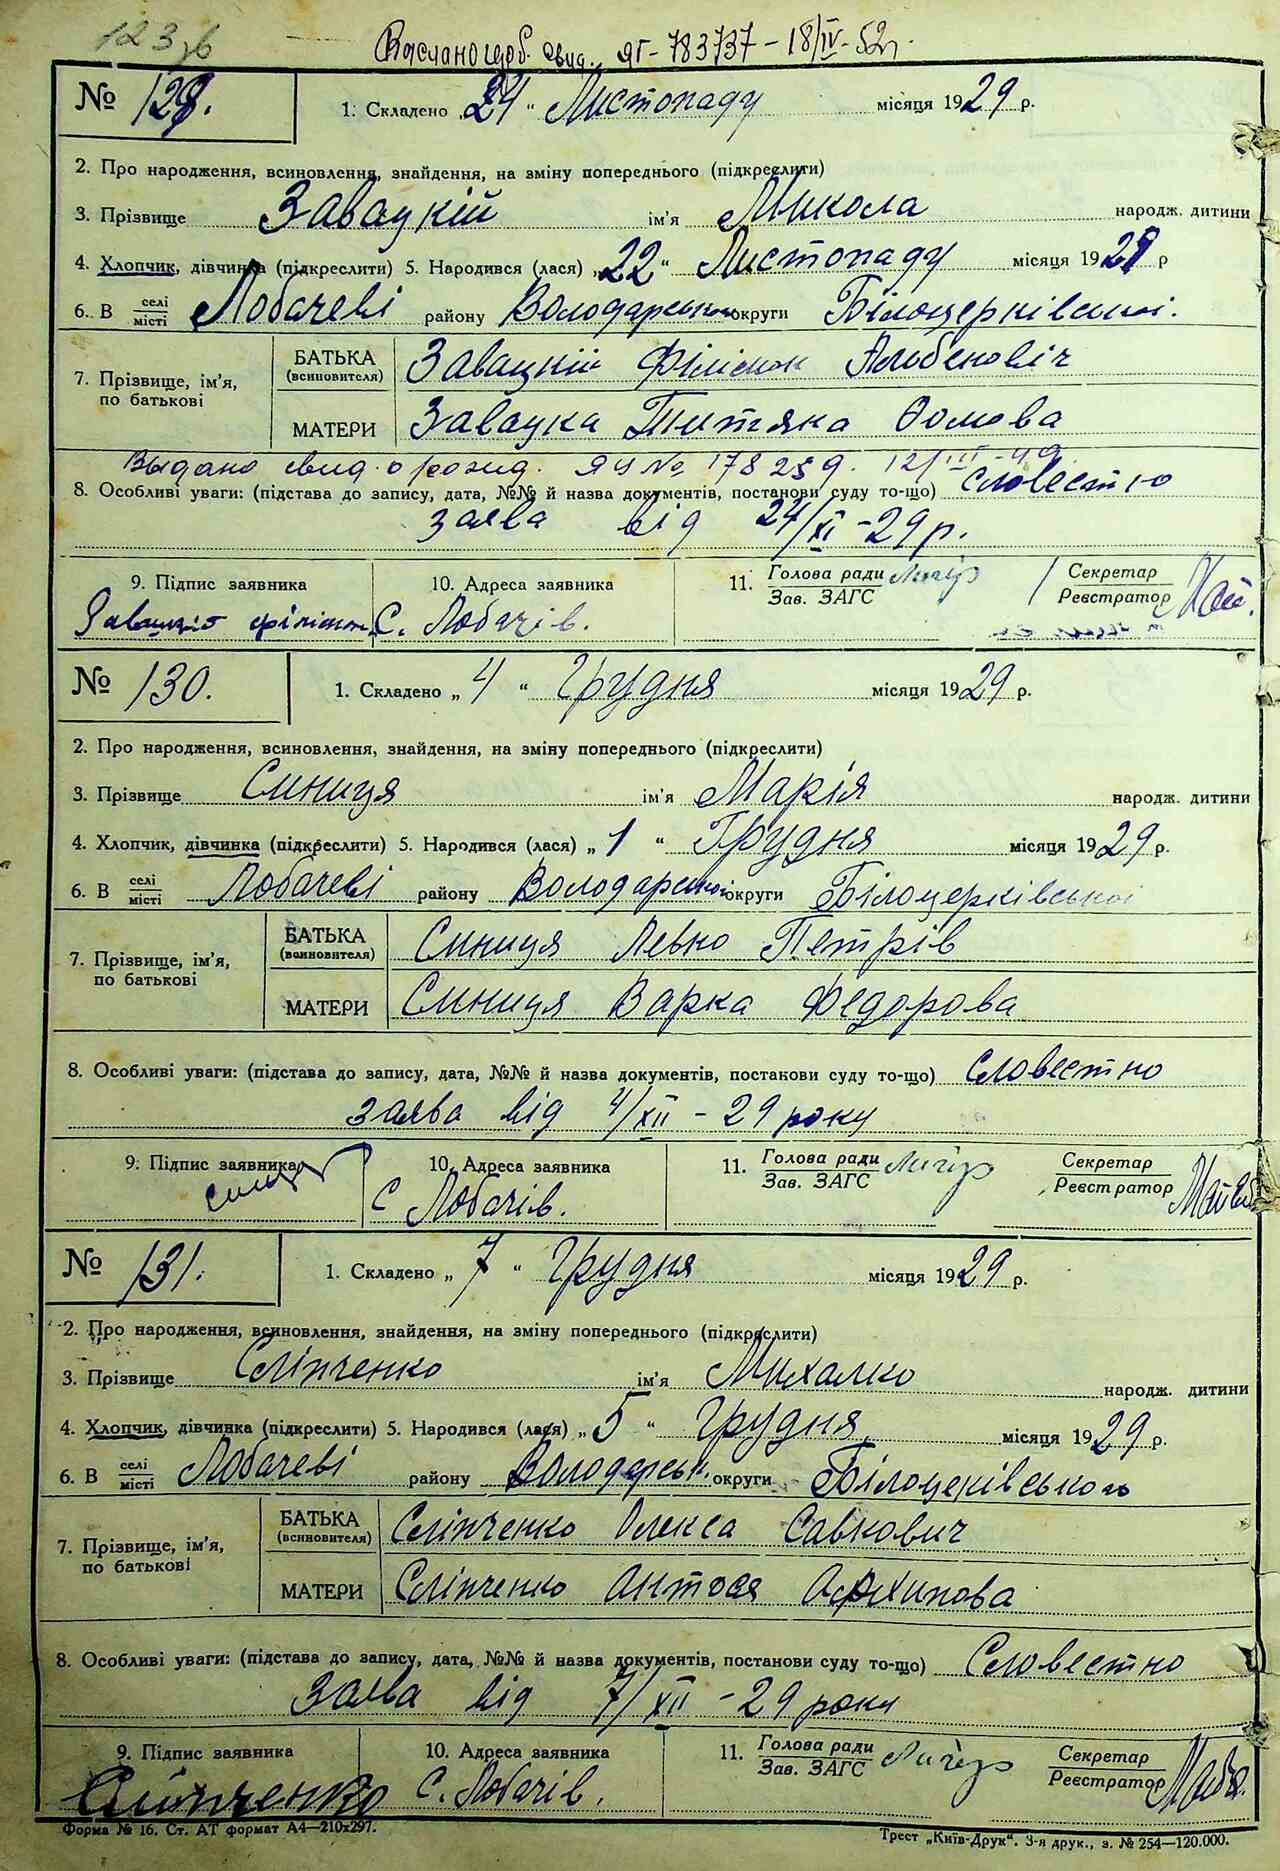 123зв
свид. ЯГ-783737-18/IV-52г.
№ 129. 1. Складено „24“ Листопаду місяця 1929 р.
2. Про народження, всиновлення, знайдення, на зміну попереднього (підкреслити)
3. Прізвище Завацкій ім'я Микола народж. дитини
4. Хлопчик, дівчинка (підкреслити) 5. Народився (лася) „22“ Листопаду місяця 1929 р
6. В селі місті Лобачеві району Володарського округи Білоцерківської.
7. Прізвище, ім'я, по батькові
БАТЬКА (всиновителя) Завацкій Філімон Альбенович
МАТЕРИ Завацка Титяна Фомова
Выдано свид. о рожд. ЯЧ № 178259. 12/III-49
8. Особливі уваги: (підстава до запису, дата, №№ й назва документів, постанови суду то-що) словестно
заява від 24/XI-29 р.
9. Підпис заявника 10. Адреса заявника 11. Голова ради Зав. ЗАГС Секретар Реєстратор
с. Лобачів.
№ 130. 1. Складено „4“ Грудня місяця 1929 р.
2. Про народження, всиновлення, знайдення, на зміну попереднього (підкреслити)
3. Прізвище Синиця ім'я Марія народж. дитини
4. Хлопчик, дівчинка (підкреслити) 5. Народився (лася) „1“ Грудня місяця 1929 р.
6. В селі місті Лобачеві району Володарської округи Білоцерківської
7. Прізвище, ім'я, по батькові
БАТЬКА (всиновителя) Синиця Левко Петрів
МАТЕРИ Синиця Варка Федорова
8. Особливі уваги: (підстава до запису, дата, №№ й назва документів, постанови суду то-що) Словестно
заява від 4/XII-29 року
9. Підпис заявника 10. Адреса заявника 11. Голова ради Зав. ЗАГС Секретар Реєстратор
Синиця с Лобачів.
№ 131. 1. Складено „7“ Грудня місяця 1929 р.
2. Про народження, всиновлення, знайдення, на зміну попереднього (підкреслити)
3. Прізвище Сліпченко ім'я Михалко народж. дитини
4. Хлопчик, дівчинка (підкреслити) 5. Народився (лася) „5“ Грудня місяця 1929 р.
6. В селі місті Лобачеві району Володарськ. округи Білоцеківського
7. Прізвище, ім'я, по батькові
БАТЬКА (всиновителя) Сліпченко Олекса Савкович
МАТЕРИ Сліпченко Антося
8. Особливі уваги: (підстава до запису, дата, №№ й назва документів, постанови суду то-що) Словестно
Заява від 7/XII-29 року
9. Підпис заявника 10. Адреса заявника 11. Голова ради Зав. ЗАГС Секретар Реєстратор
Сліпченко с. Лобачів.
Форма № 16. Ст. АТ формат А4—210x297.
Трест „Київ-Друк“. 3-я друк., з. № 254—120.000.